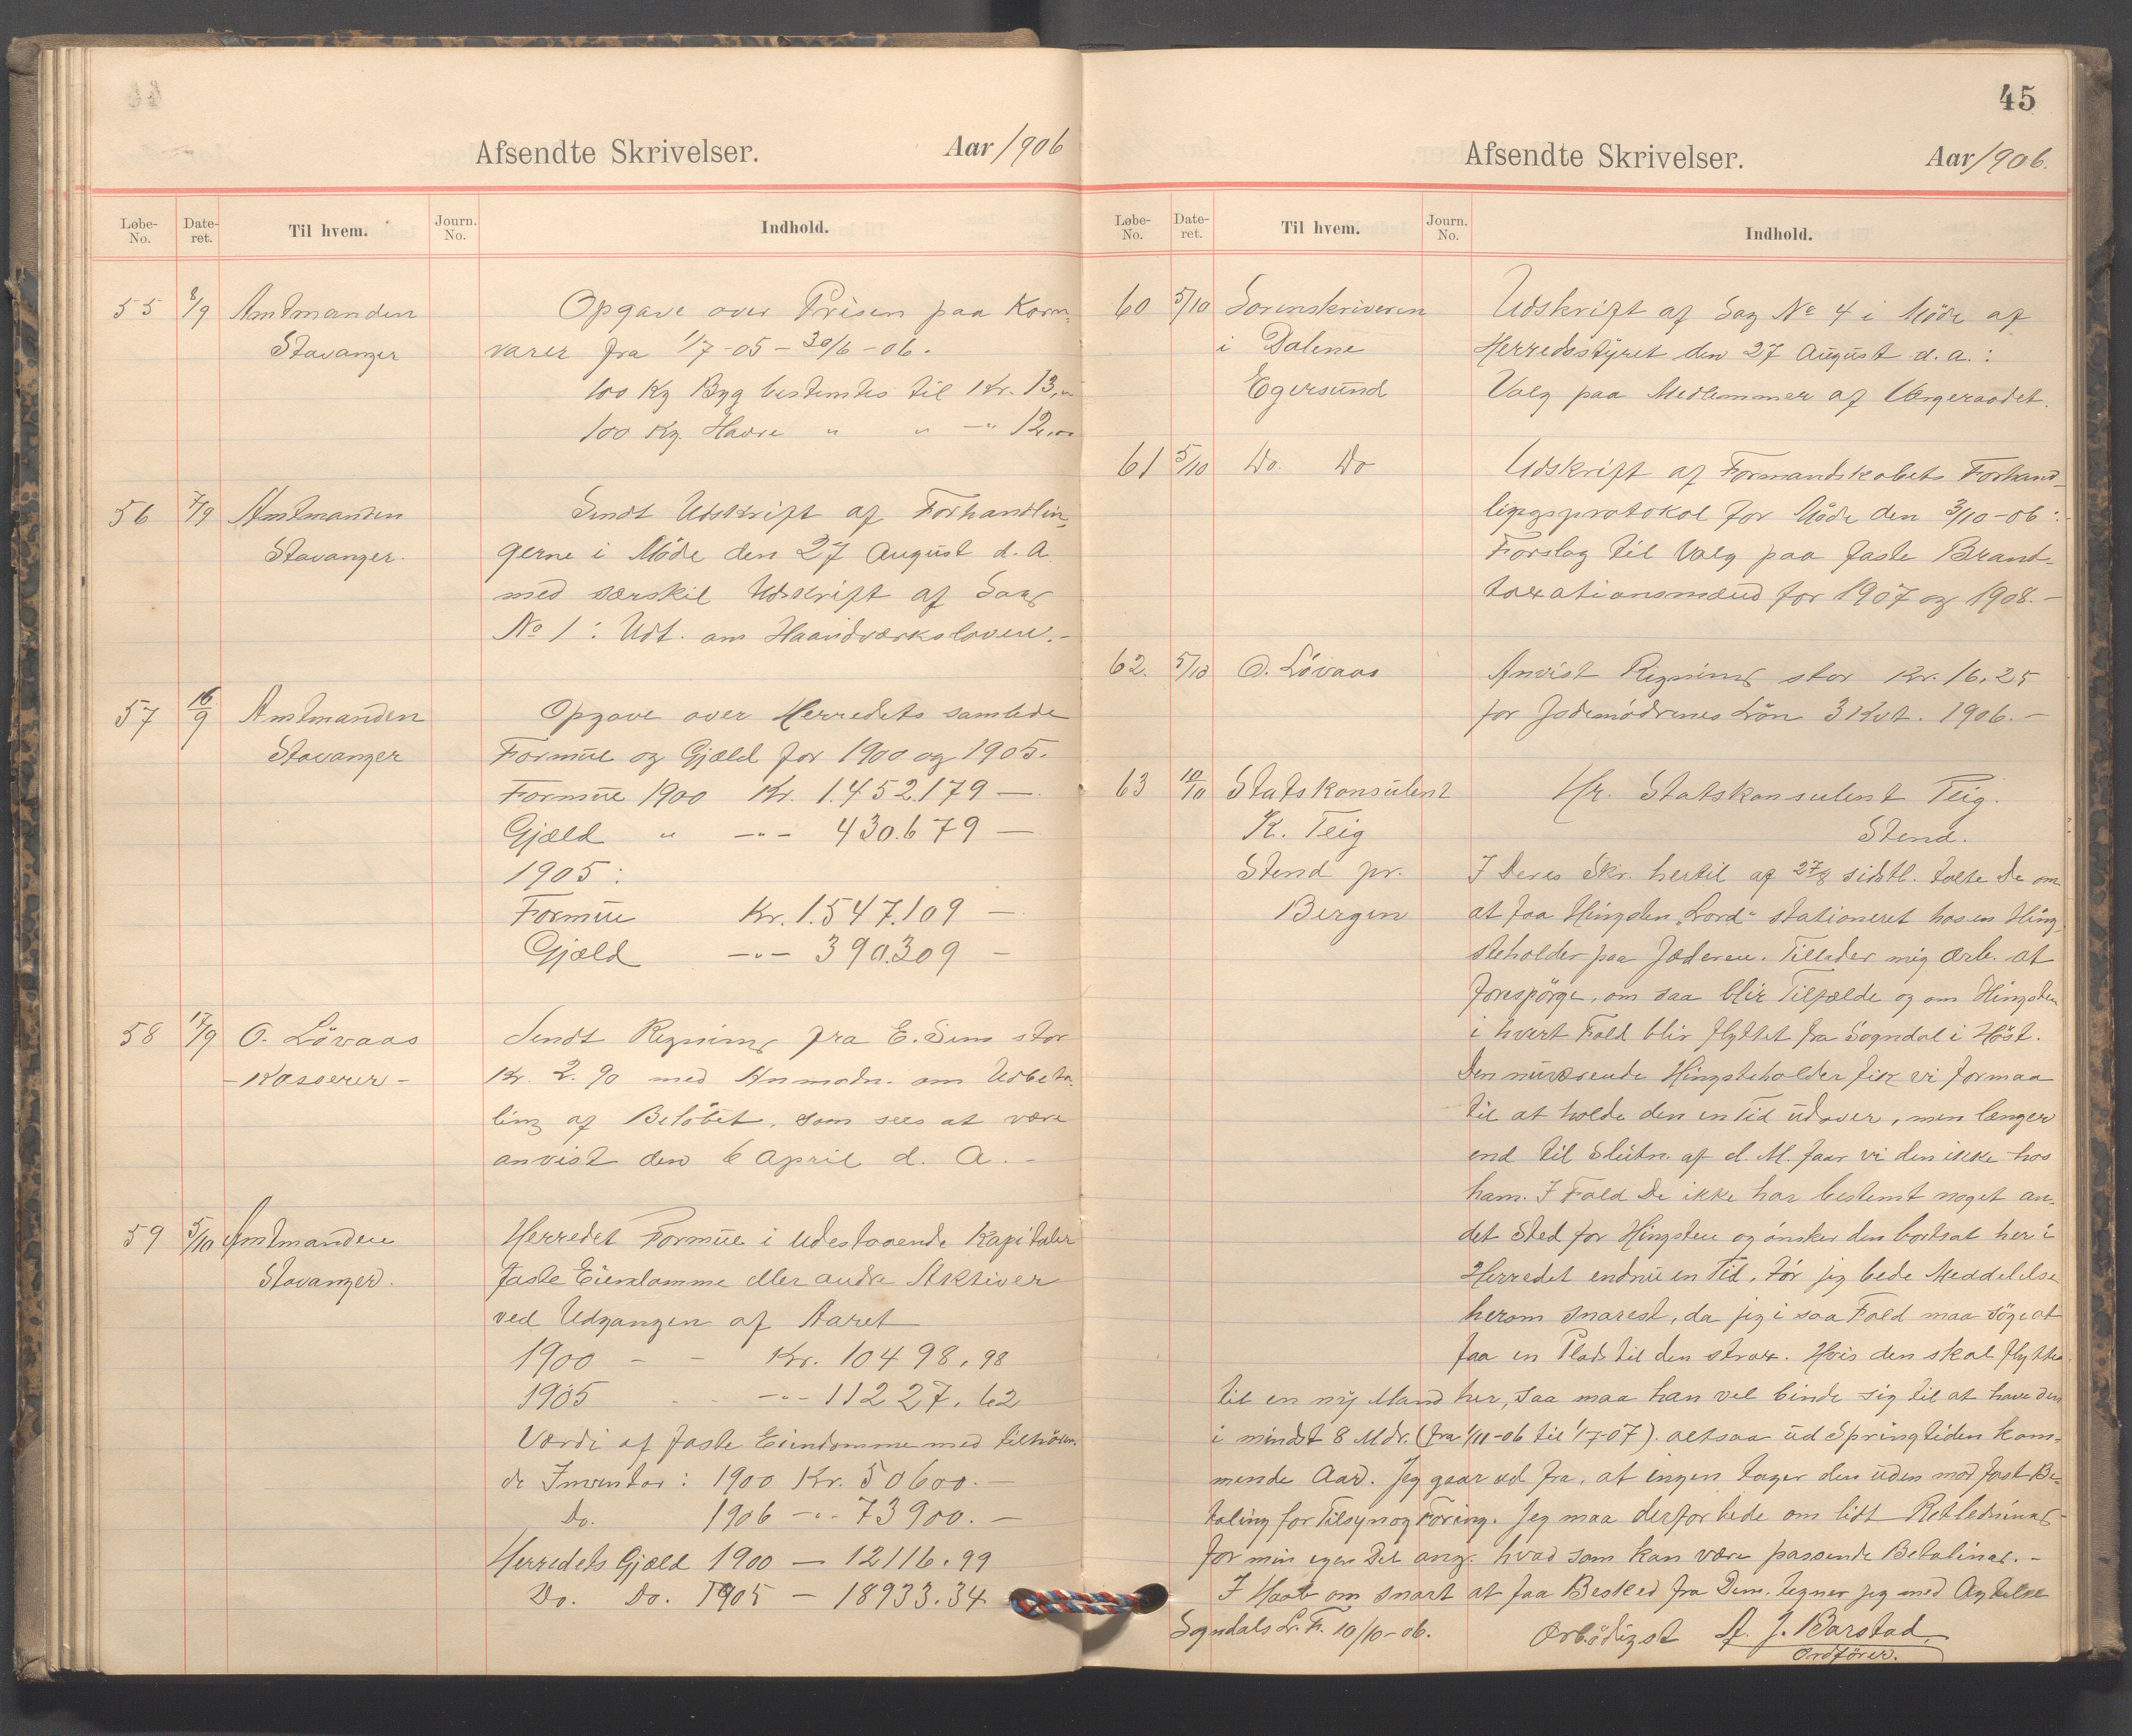 Afsendte Skrivelser. Aar 1906
Løbe-No. Date-ret. Til hvem. Journ. No. Indhold.
55 8/9 Amtmanden Opgave over Prisen paa Korn-
Stavanger varer fra 1/7-05 – 30/6-06.
100 Kg Byg bestemtes til Kr. 13,00
100 Kg. Havre " " -"- 12,00
56 7/9 Amtmanden Sendt Udskrift af Forhandlin-
Stavanger. gerne i Möde den 27 August d. A.
med særskil Udskrift af Sag
No 1: Udt. om Haandværksloven.-
57 16/9 Amtmanden Opgave over Herredets samlede
Stavanger Formue og Gjæld for 1900 og 1905.
Formue 1900 Kr. 1.452.179 —
Gjæld " -"- 430.679 —
1905:
Formue Kr. 1.547.109 —
Gjæld -"- 390.309 –
58 17/9 O. Lövaas Sendt Regning fra E. Sem stor
- Kasserer - Kr. 2.90 med Anmodn. om Udbeta-
ling af Belöbet, som sees at være
anvist den 6 April d. A. -
59 5/10 Amtmanden Herredet Formue i udestaaende Kapitaler
Stavanger. faste Eiendomme eller andre Aktiver
ved Udgangen af Aaret
1900 - - Kr. 10498,98
1905 - - -"- 11227.62
Værdi af faste Eiendomme med tilhören-
de Inventar: 1900 Kr. 50600. —
Do. 1906 -"- 73900. —
Herredets Gjæld 1900 — 12116.99
Do. Do. 1905 — 18933.34
45
Afsendte Skrivelser. Aar 1906.
Løbe-No. Date-ret. Til hvem. Journ. No. Indhold.
60 5/10 Sorenskriveren Udskrift af Sag No 4 i Möde af
i Dalene Herredsstyret den 27 August d. a.:
Egersund Valg paa Medlemmer af Værgeraadet.
61 5/10 Do. Do Udskrift af Formandskabets Forhand-
lingsprotokol for Möde den 3/10-06:
Forslag til Valg paa faste Brand-
taxationsmænd for 1907 og 1908.-
62. 5/10 O. Lövaas Anvist Regning stor Kr. 16,25
for Jodemödrenes Lön 3 Kvt. 1906. —
63 10/10 Statskonsulent Hr. Statskonsulent Teig.
K. Teig Stend.
Stend pr. I Deres Skr. hertil af 27/8 sidstl. talte De om
Bergen at faa Hingsten "Lord" stationeret hos en Hing-
steholder paa Jæderen. Tillader mig ærb. at
forespörge, om saa blir Tilfælde og om Hingsten
i hvert Fald blir flyttet fra Sogndal i Höst.
Den nuværende Hingsteholder fik vi formaa
til at holde den en Tid udover, men længer
end til Slutn. af d. M. faar vi den ikke hos
ham. I Fald De ikke har bestemt noget an-
det Sted for Hingsten og önsker den bortsat her i
Herredet endnu en Tid, tör jeg bede Meddelelse
herom snarest, da jeg i saa Fald maa söge at
faa en Plads til den strax. Hvis den skal flyttes
til en ny Mand her, saa maa han vel binde sig til at have den
i mindst 8 Mdr. (fra 1/11-06 til 1/7-07). altsaa ud Springtiden kom-
mende Aar. Jeg gaar ud fra, at ingen tager den uden mod fast Be-
taling for Tilsyn og Foring. Jeg maa derfor bede om lidt Retledning
for min egen Del ang. hvad som kan være passende Betaling. -
I Haab om snart at faa Besked fra Dem, tegner jeg med Agtelse
Sogndals L. F. 10/10-06. Ærbödigst A. J. Barstad.
Ordförer.